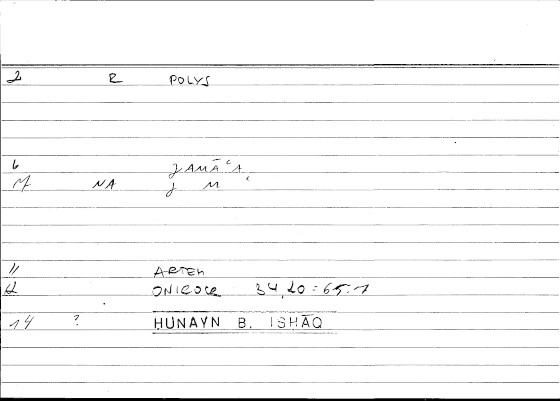 2 R POLYS
6 JAMĀʿA
M NA J M ʿ
11 ARTEM
12 ONIROCR 34,20 = 65:7
14 ? HUNAYN B. ISHĀQ